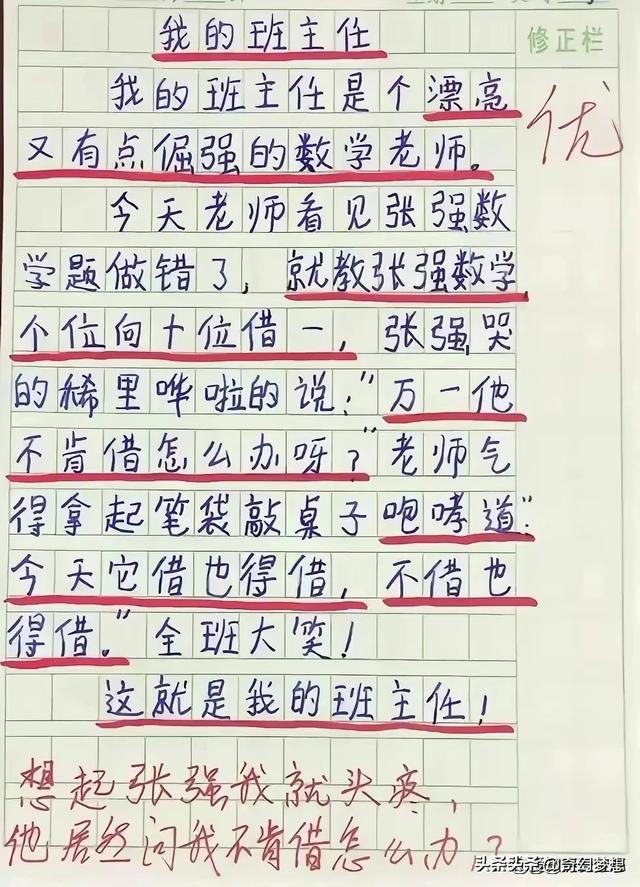 我的班主任
修正栏
我的班主任是个漂亮
优
又有点倔强的数学老师。
今天老师看见张强数
学题做错了,就教张强数学
个位向十位借一,张强哭
的稀里哗啦的说:"万一他
不肯借怎么办呀?"老师气
得拿起笔袋敲桌子咆哮道"
今天它借也得借,不借也
得借。"全班大笑!
这就是我的班主任!
想起张强我就头疼,
他居然问我不肯借怎么办?
头条头条@奇幻梦想